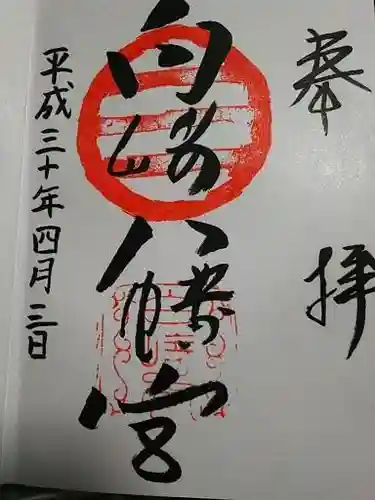 奉拝
白崎八幡宮
平成三十年四月三日